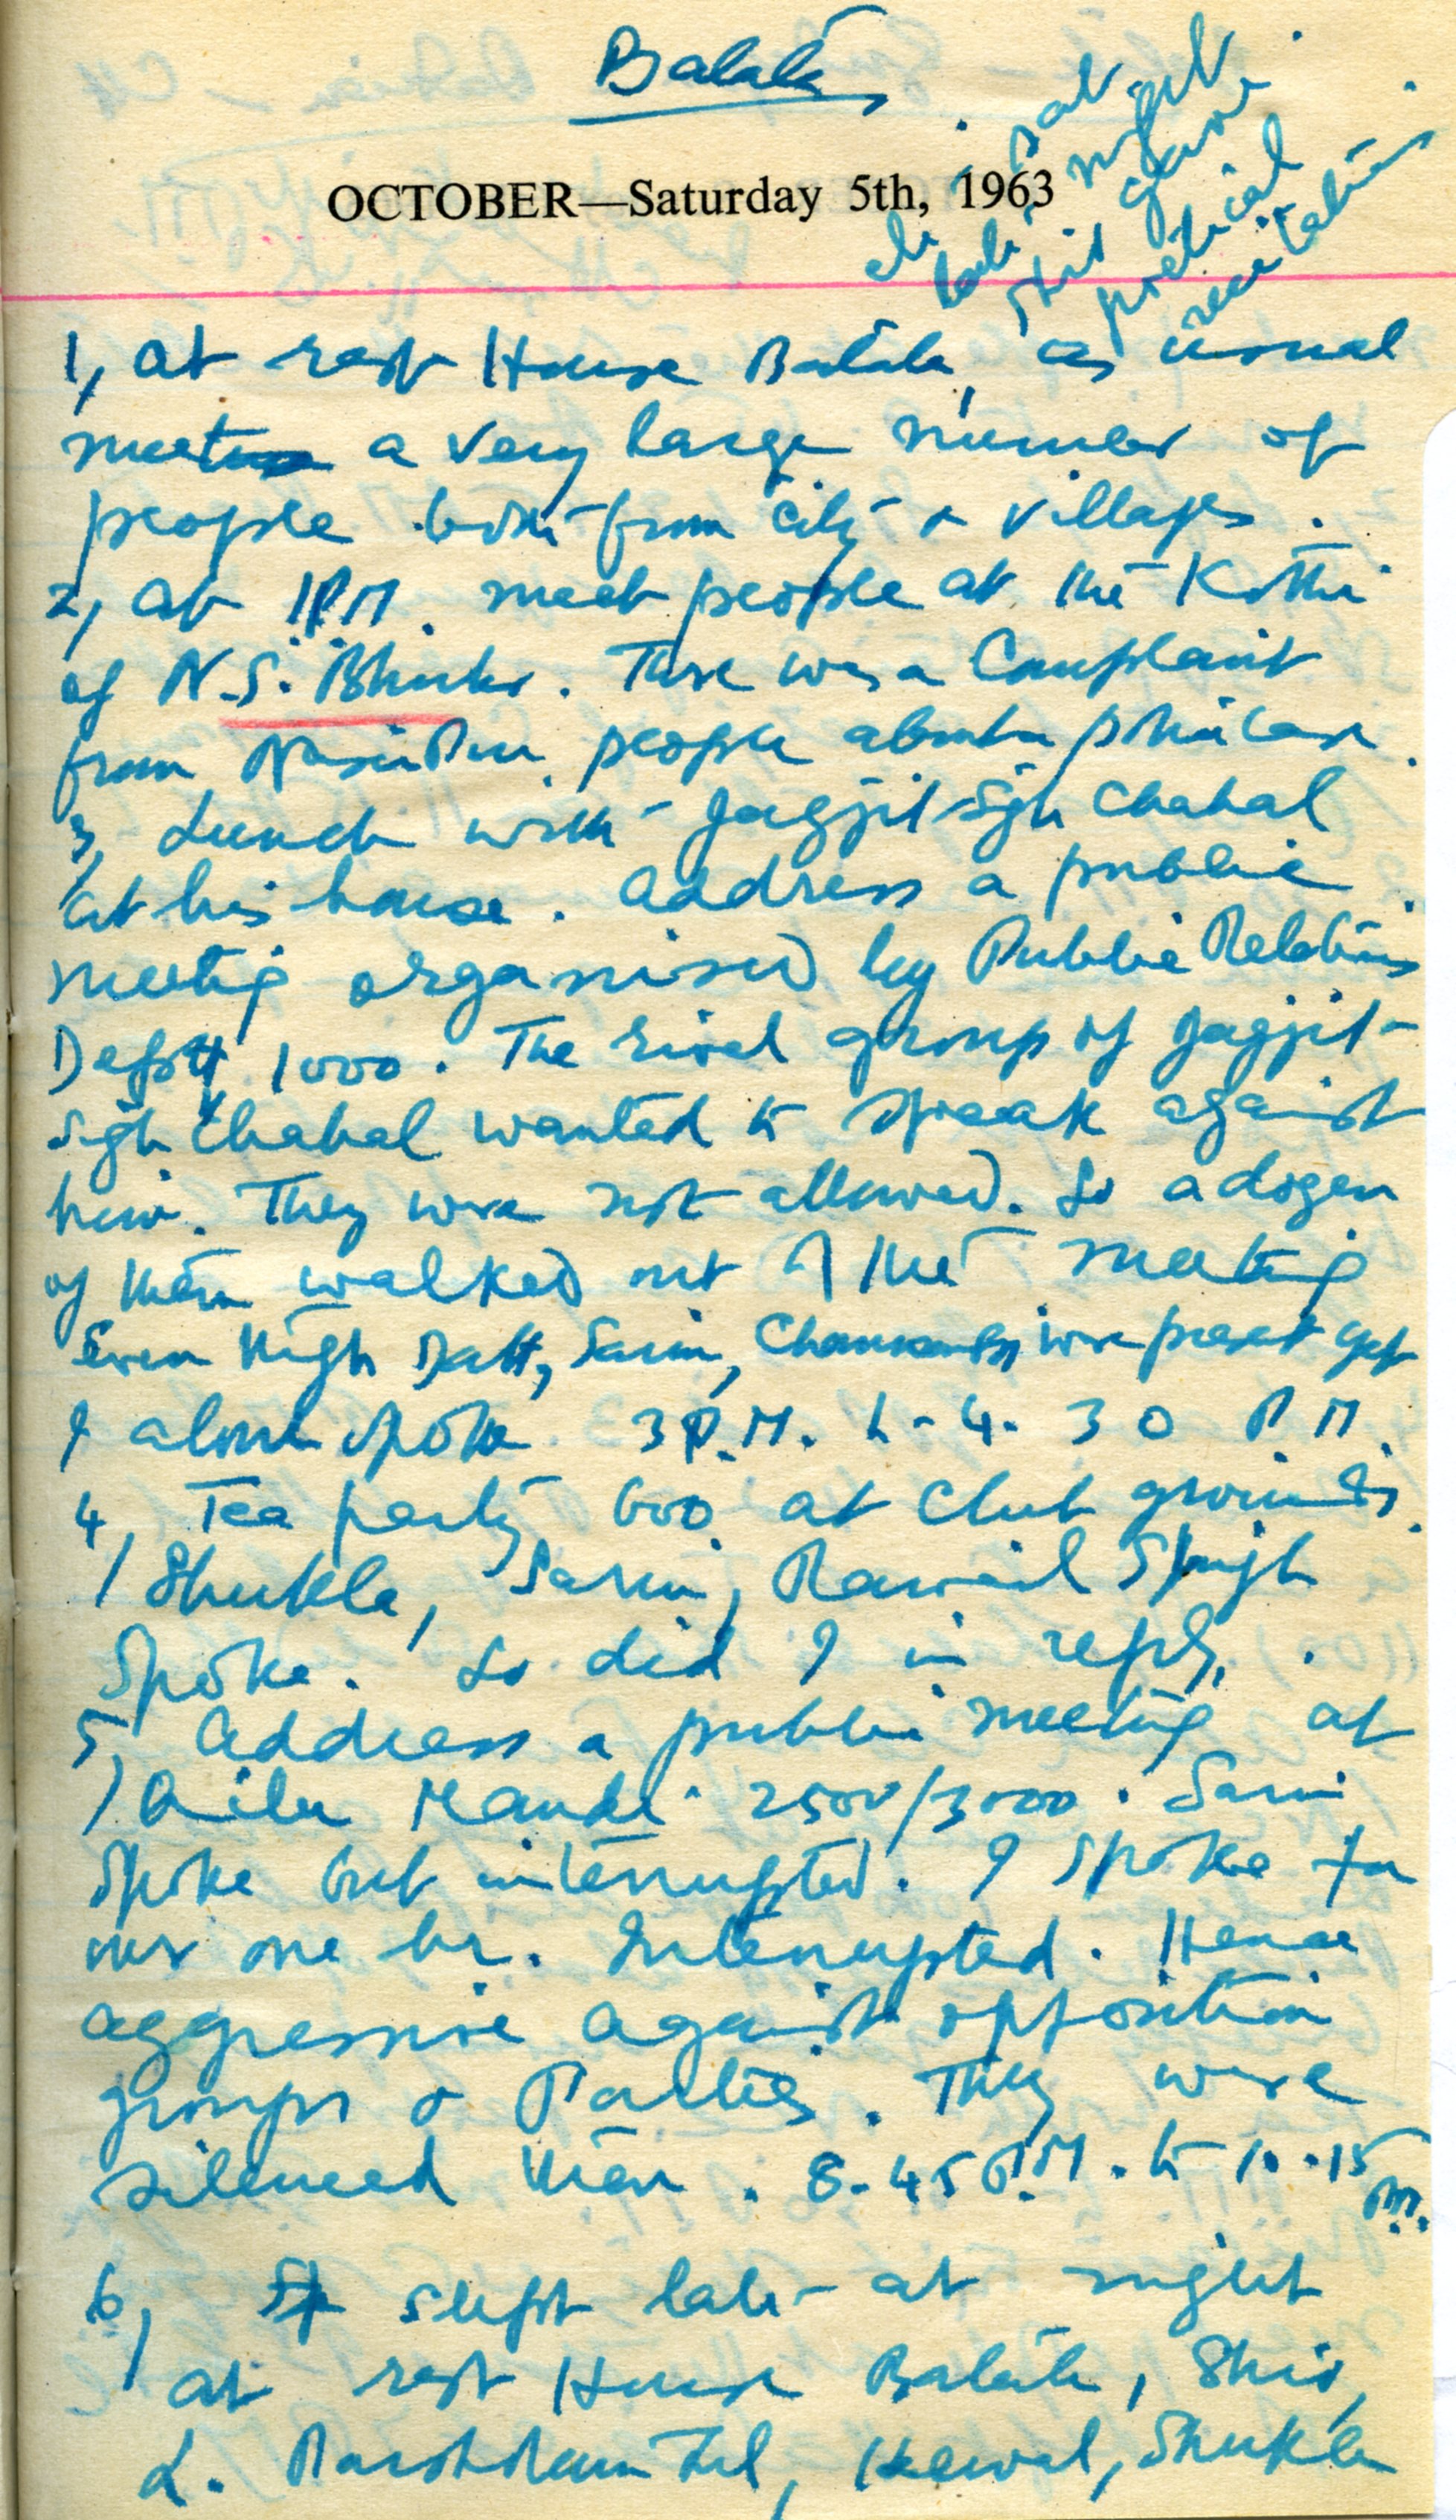 Batala
OCTOBER—Saturday 5th, 1963
sat
late night
Shiv gave
poetical
recitation
1, At rest House Batala, as usual
meet a very large number of
people both from city & villages.
2, At 1 P.M. meet people at the Kothi
of N.S. There was a Complaint
from people about
3, Lunch with Jagjit Sgh Chahal
at his house. Address a public
meeting organised by Public Relations
Deptt 1000. The rival group of Jagjit
Sigh Chahal wanted to speak against
him. They were not allowed. So a dozen
of them walked out of the meeting
Even though Datt, Sarin, were present yet
I alone spoke 3 P.M. to 4.30 P.M.
4, Tea party 600 at Club grounds.
Shukla, Sarin, Rawail Singh
Spoke. So did I in reply.
5, Address a public meeting at
Mandi 2500/3000. Sarin
Spoke but interrupted. I spoke for
over one hr. Interrupted. Hence
aggressive against opposition
groups & Parties. They were
silenced then. 8.45 P.M. to 10.15
P.M.
6, slept late at night
at rest House Batala, Shiv,
L. Parshotam Lal, Kewal, Shukla